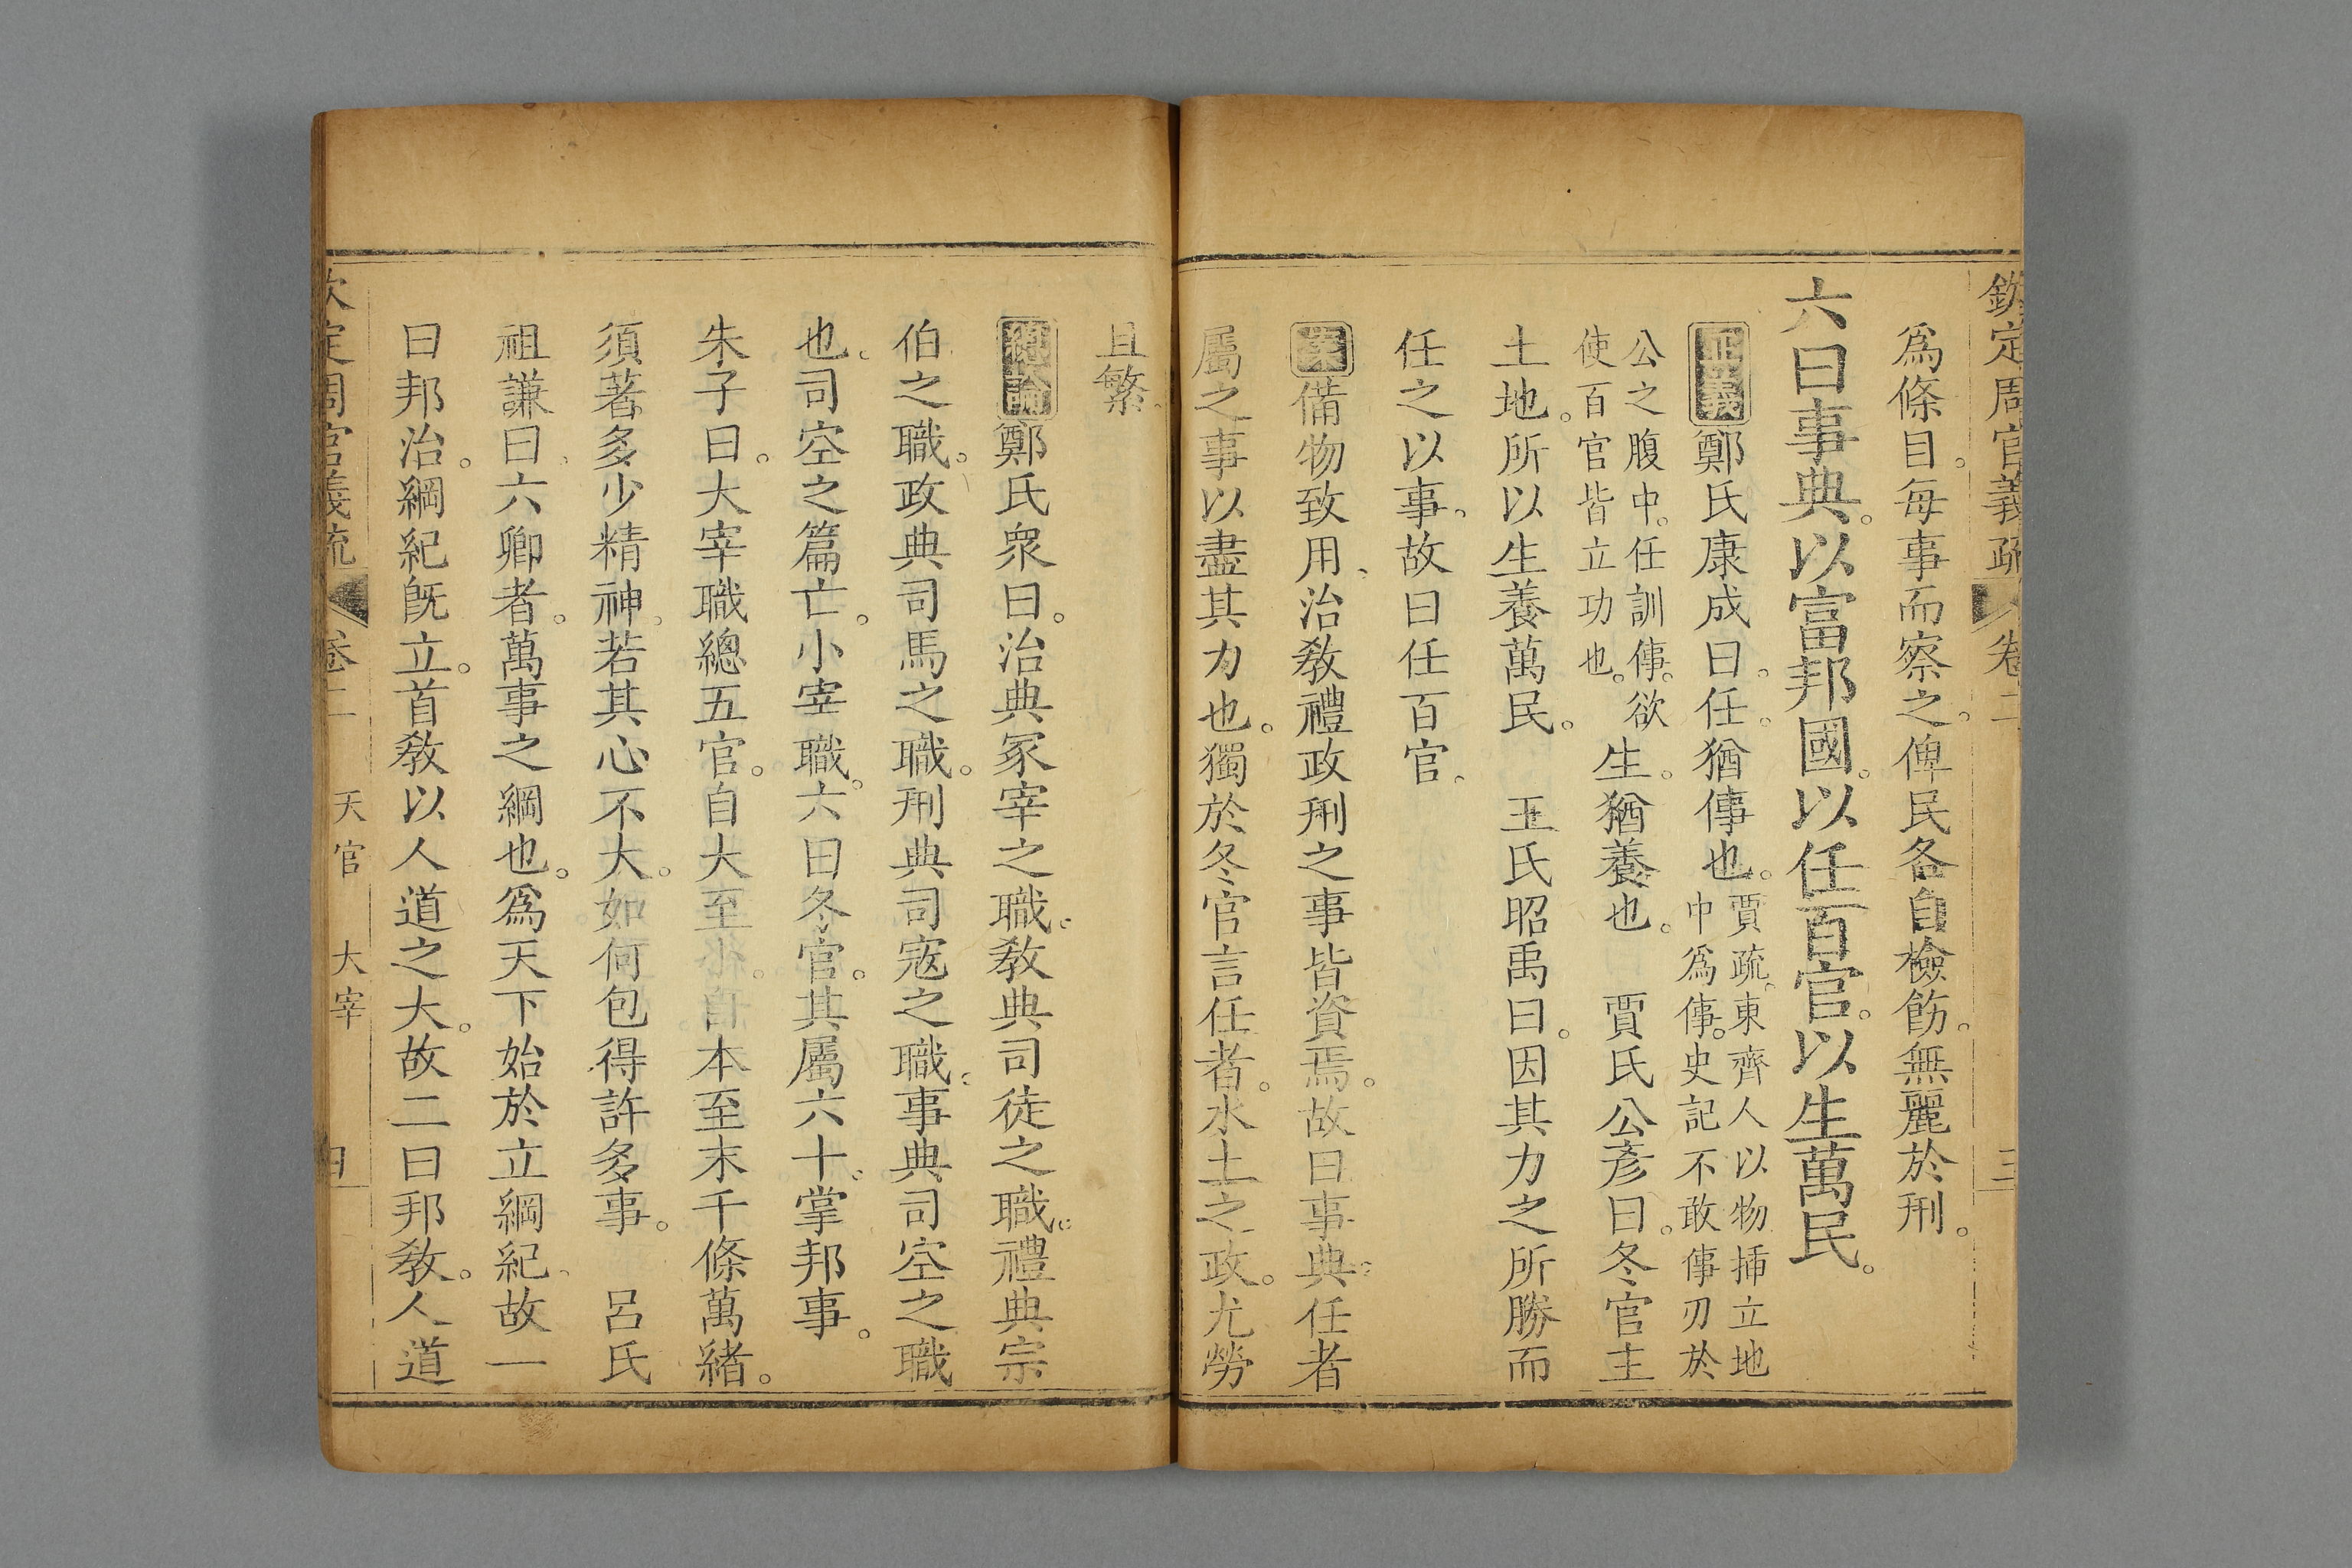 欽定周官義疏 卷二 三
爲條目。每事而察之。俾民各自檢飭。無麗於刑。
六曰事典。以富邦國。以任百官。以生萬民。
正義鄭氏康成曰。任。猶傳也。賈疏。東齊人以物揷立地
中爲傳。史記不敢傳刃於
公之腹中。任訓傳。欲
使百官皆立功也。生。猶養也。 賈氏公彥曰。冬官主
土地。所以生養萬民。 王氏昭禹曰。因其力之所勝而
任之以事。故曰任百官。
案備物致用。治敎禮政刑之事皆資焉。故曰事典。任者
屬之事以盡其力也。獨於冬官言任者。水土之政。尤勞
且繁。
總論鄭氏衆曰。治典冢宰之職。敎典司徒之職。禮典宗
伯之職。政典司馬之職。刑典司寇之職。事典司空之職
也。司空之篇亡。小宰職。六曰冬官。其屬六十。掌邦事。
朱子曰。大宰職總五官。自大至小。自本至末。千條萬緒。
須著多少精神。若其心不大。如何包得許多事。 呂氏
祖謙曰。六卿者。萬事之綱也。爲天下始於立綱紀。故一
曰邦治。綱紀旣立。首敎以人道之大。故二曰邦敎。人道
欽定周官義疏 卷二 天官 大宰